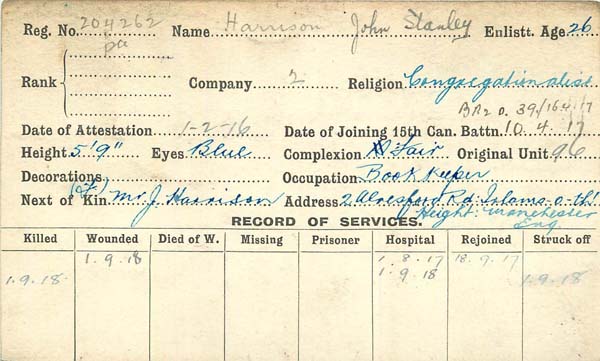 Reg. No. 204262 Name Harrison John Stanley Enlistt. Age 26
Pte
Rank Company 2 Religion Congregationalist
BR2 O. 39/16.4.17
Date of Attestation 1-2-16 Date of Joining 15th Can. Battn. 10.4.17
Height 5'9" Eyes Blue Complexion Fair Original Unit 96
Decorations Occupation Book Keeper
Next of Kin (F) Mr. J. Harrison Address 2 Alresford Rd. Irlams-o-th'
Height: Manchester
Eng
RECORD OF SERVICES.
Killed Wounded Died of W. Missing Prisoner Hospital Rejoined Struck off
1.9.18 1.8.17 18.9.17
1.9.18 1.9.18 1.9.18